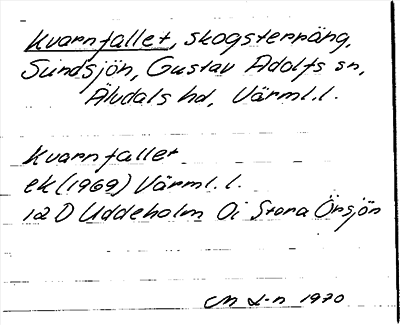 Kvarnfallet, skogsterräng,
Sundsjön, Gustav Adolfs sn,
Älvdals hd, Värml.l.
Kvarnfallet
ek (1969) Värml. l.
12 D Uddeholm 0i Stora Örsjön
CM L-n 1970